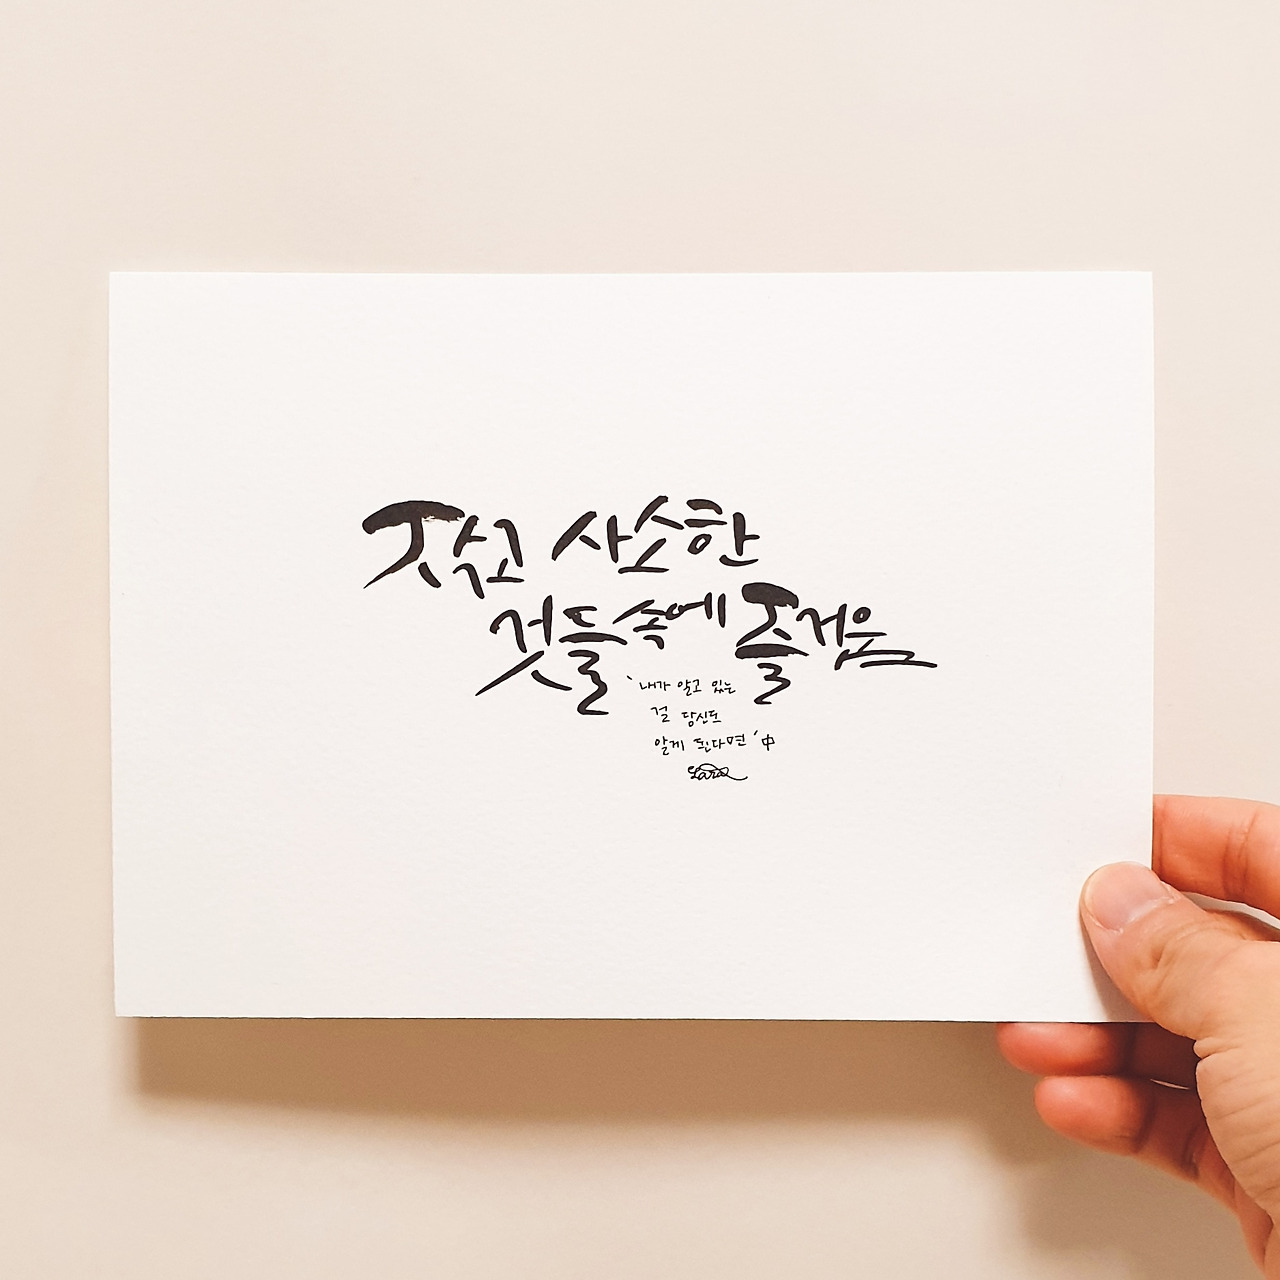 작고 사소한
것들 속에 즐거움
'내가 알고 있는
걸 당신도
알게 된다면' 中
Lara